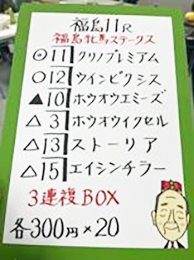 福島11R
福島牝馬ステークス
◎11 クリノプレミアム
○12 ウインピクシス
▲10 ホウオウエミーズ
△3 ホウオウイクセル
△13 ストーリア
△15 エイシンチラー
3連複BOX
各300円×20